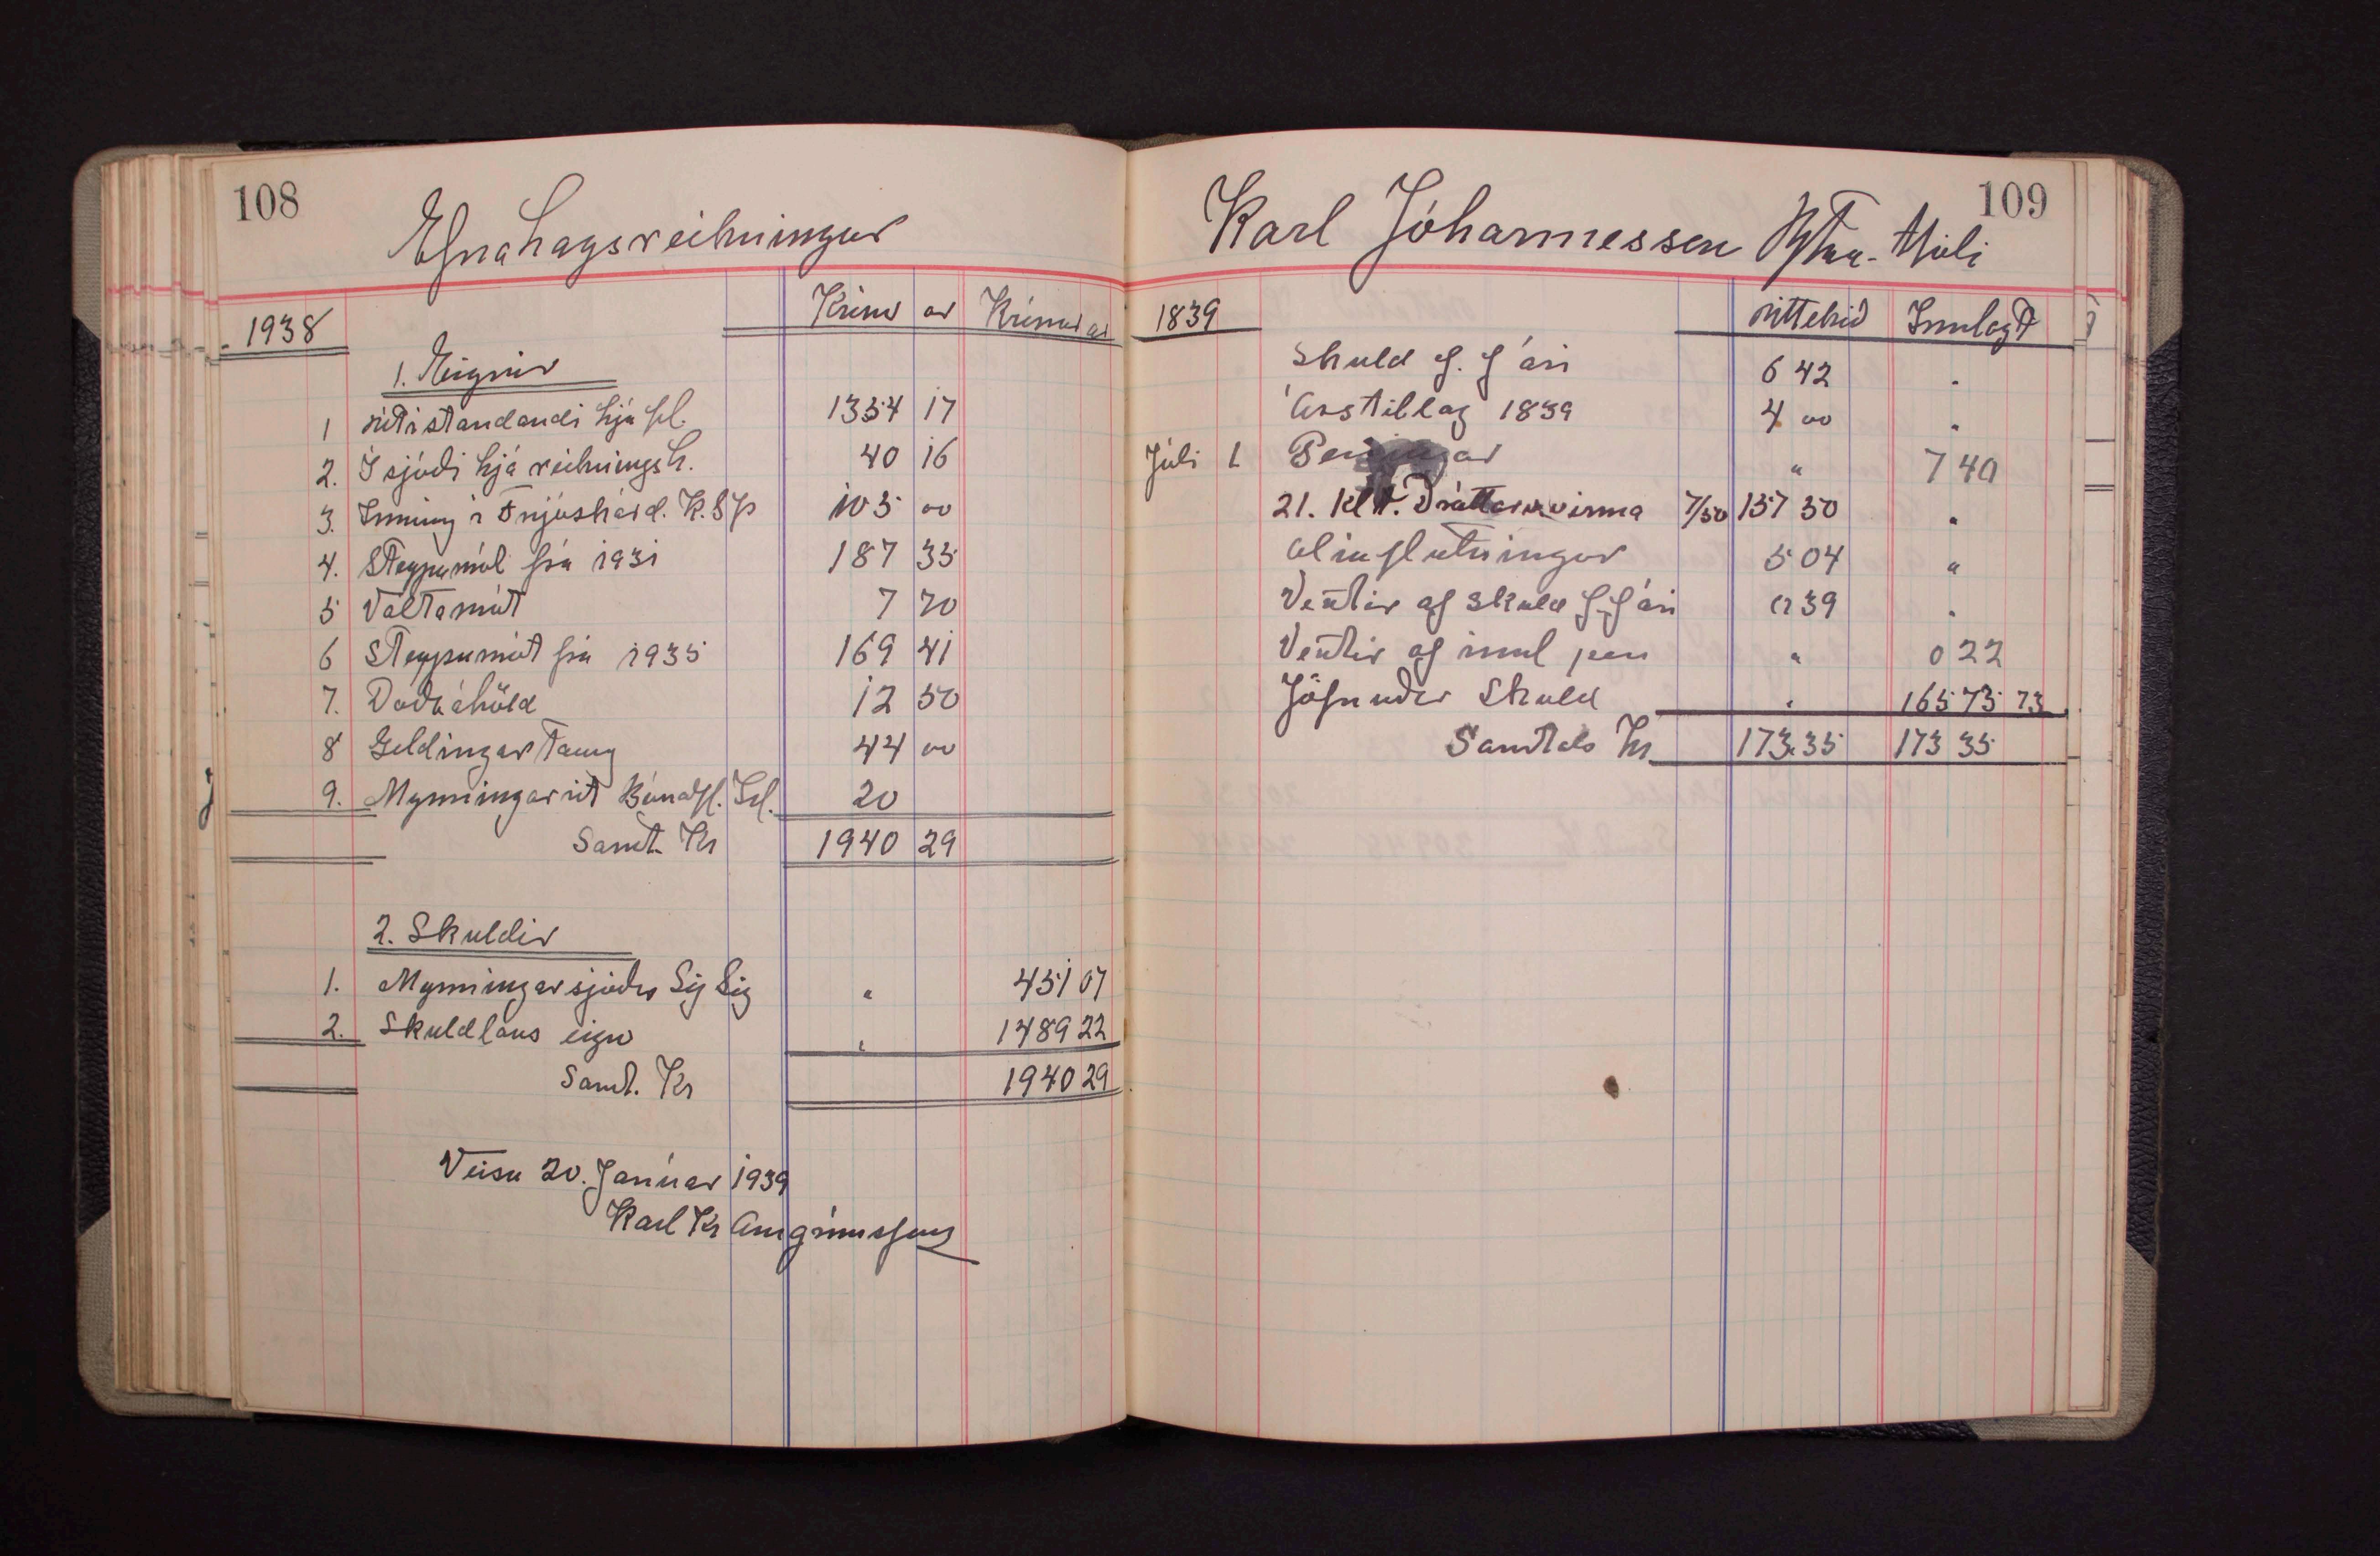 108
Efnahagsreikningur
1938
Krónur ar Krónur ar
1. Eignir
1 Útistandandi hjá fél. 1354 17
2. Í sjóði hjá reikningsh. 40 16
3. Innieig í Fnjóskárd. K.S.Þ 105 00
4. Steypumót frá 1931 187 35
5 Valtamót 7 70
6 Steypumót frá 1935 169 41
7. Doðaáhöld 12 50
8 Geldingartaung 44 00
9. Mynningarrit Búnaðfl. Ísl. 20
Samt. Kr 1940 29
2. Skuldir
1. Mynningarsjóður Sig Sig " 451 07
2. Skuldlaus eign " 1489 22
Samt. Kr 1940 29
Veisu 20. Janúar 1939
Karl Kr Arngrímsson
109
Karl Jóhannessen Ytra-
1839 úttekið Innlagt
Skuld f. f ári 6 42 "
Árstillag 1839 4 00 "
Júli 1 Peningar " 7 40
21. Kl.t. Dráttarv.vinna 7/50 157 50 "
flutningur 5 04 "
Ventir af skuld f. f ári 0 39 "
Ventir af innl pen " 0 22
Jöfnuður Skuld " 165 73 73
Samtals Kr 173.35 173 35